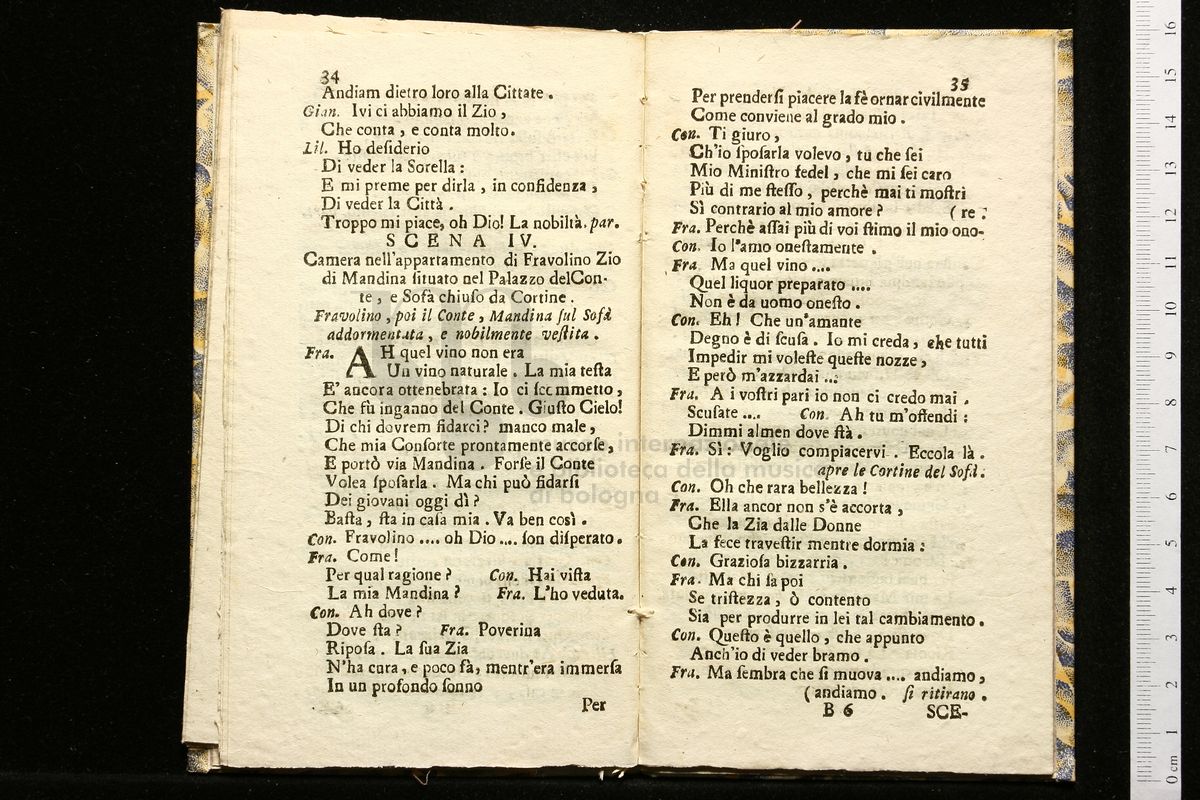 34
Andiam dietro loro alla Cittate .
Gian. Ivi ci abbiamo il Zio ,
Che conta , e conta molto.
Lil. Ho deſiderio
Di veder la Sorella :
E mi preme per dirla , in confidenza ,
Di veder la Città .
Troppo mi piace, oh Dio! La nobiltà. par.
SCENA IV.
Camera nell'appartamento di Fravolino Zio
di Mandina ſituato nel Palazzo delCon-
te , e Sofà chiuſo da Cortine .
Fravolino , poi il Conte , Mandina ſul Sofà
addormentata , e nobilmente veſtita .
Fra. AH quel vino non era
Un vino naturale . La mia teſta
E' ancora ottenebrata : Io ci ſcommetto ,
Che fù inganno del Conte . Giuſto Cielo!
Di chi dovrem fidarci ? manco male ,
Che mia Conſorte prontamente accorſe ,
E portò via Mandina . Forſe il Conte
Volea ſpoſarla . Ma chi può fidarſi
Dei giovani oggi dì ?
Baſta , ſta in caſa mia . Va ben così .
Con. Fravolino .... oh Dio .... ſon diſperato .
Fra. Come !
Per qual ragione ? Con. Hai viſta
La mia Mandina ? Fra. L'ho veduta.
Con. Ah dove ?
Dove ſta ? Fra. Poverina
Ripoſa . La ſua Zia
N'ha cura , e poco fà, mentr'era immerſa
In un profondo ſonno
Per
35
Per prenderſi piacere la fè ornar civilmente
Come conviene al grado mio .
Con. Ti giuro ,
Ch'io ſpoſarla volevo , tu che ſei
Mio Miniſtro fedel , che mi ſei caro
Più di me ſteſſo , perchè mai ti moſtri
Sì contrario al mio amore ? ( re .
Fra. Perchè aſſai più di voi ſtimo il mio ono-
Con. Io l'amo oneſtamente .
Fra. Ma quel vino ....
Quel liquor preparato ....
Non è da uomo oneſto .
Con. Eh ! Che un'amante
Degno è di ſcuſa . Io mi creda , che tutti
Impedir mi voleſte queſte nozze ,
E però m'azzardai ...
Fra. A i voſtri pari io non ci credo mai .
Scuſate .... Con. Ah tu m'offendi :
Dimmi almen dove ſtà .
Fra. Sì : Voglio compiacervi . Eccola là .
apre le Cortine del Sofà.
Con. Oh che rara bellezza !
Fra. Ella ancor non s'è accorta ,
Che la Zia dalle Donne
La fece traveſtir mentre dormia :
Con. Grazioſa bizzarria .
Fra. Ma chi ſa poi
Se triſtezza , ò contento
Sia per produrre in lei tal cambiamento .
Con. Queſto è quello , che appunto
Anch'io di veder bramo .
Fra. Ma ſembra che ſi muova .... andiamo ,
( andiamo . ſi ritirano .
B 6 SCE-
museo internazionale
e biblioteca della musica
di bologna
0 cm 1 2 3 4 5 6 7 8 9 10 11 12 13 14 15 16